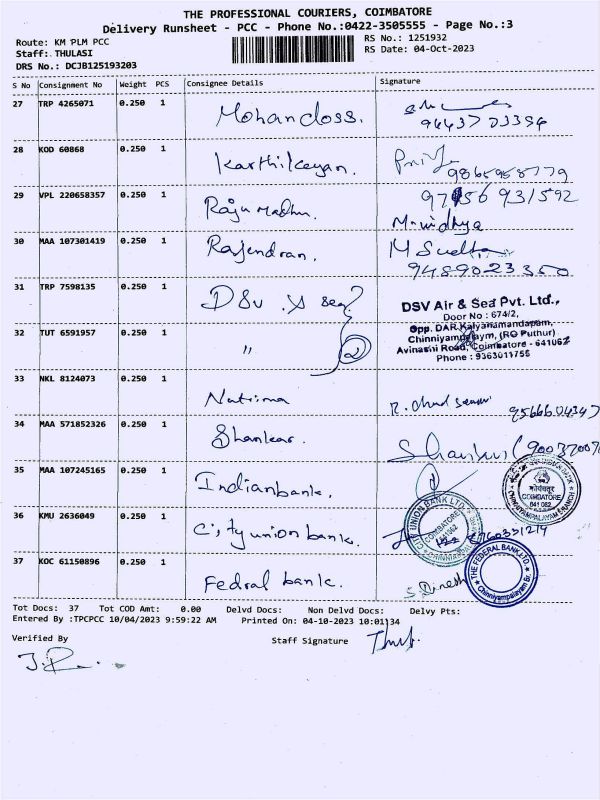 THE PROFESSIONAL COURIERS, COIMBATORE
Delivery Runsheet - PCC - Phone No.:0422-3505555 - Page No.:3
Route: KM PLM PCC
RS No.: 1251932
Staff: THULASI
RS Date: 04-Oct-2023
DRS No.: DCJB125193203
S No Consignment No Weight PCS Consignee Details Signature
27 TRP 4265071 0.250 1 Mohandoss.
28 KOD 60868 0.250 1 Karthikeyan. 9865958779
29 VPL 220658357 0.250 1 Raju madhu. 97156 931592
M. widhya
30 MAA 107301419 0.250 1 Rajendran.
9489023350
31 TRP 7598135 0.250 1 DSV & sea
DSV Air & Sea Pvt. Ltd.,
Door No : 674/2,
Opp. DAR Kalyanamandapam,
32 TUT 6591957 0.250 1 "
Chinniyampalaym, (RO Puthur)
Avinashi Road, Coimbatore - 641062
Phone : 9363011755
33 NKL 8124073 0.250 1 9566604347
34 MAA 571852326 0.250 1 Shankar.
35 MAA 107245165 0.250 1 Indianbank.
COIMBATORE
641 062
CHINNIYAMPALAYAM BRANCH
36 KMU 2636049 0.250 1 City union bank.
UNION BANK LTD
COIMBATORE
37 KOC 61150896 0.250 1 Fedral bank. S. Dinesh
THE FEDERAL BANK LTD.
Chinniyampalayam Br.
Tot Docs: 37 Tot COD Amt: 0.00 Delvd Docs: Non Delvd Docs: Delvy Pts:
Entered By :TPCPCC 10/04/2023 9:59:22 AM Printed On: 04-10-2023 10:01:34
Verified By
Staff Signature